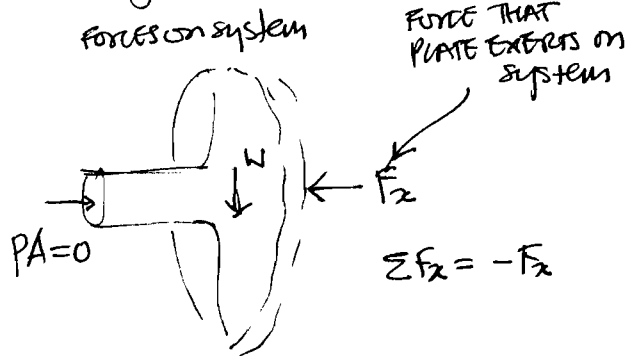 FORCES on system
FORCE THAT
PLATE EXERTS ON
system
W
Fx
PA=0
ΣFx = -Fx